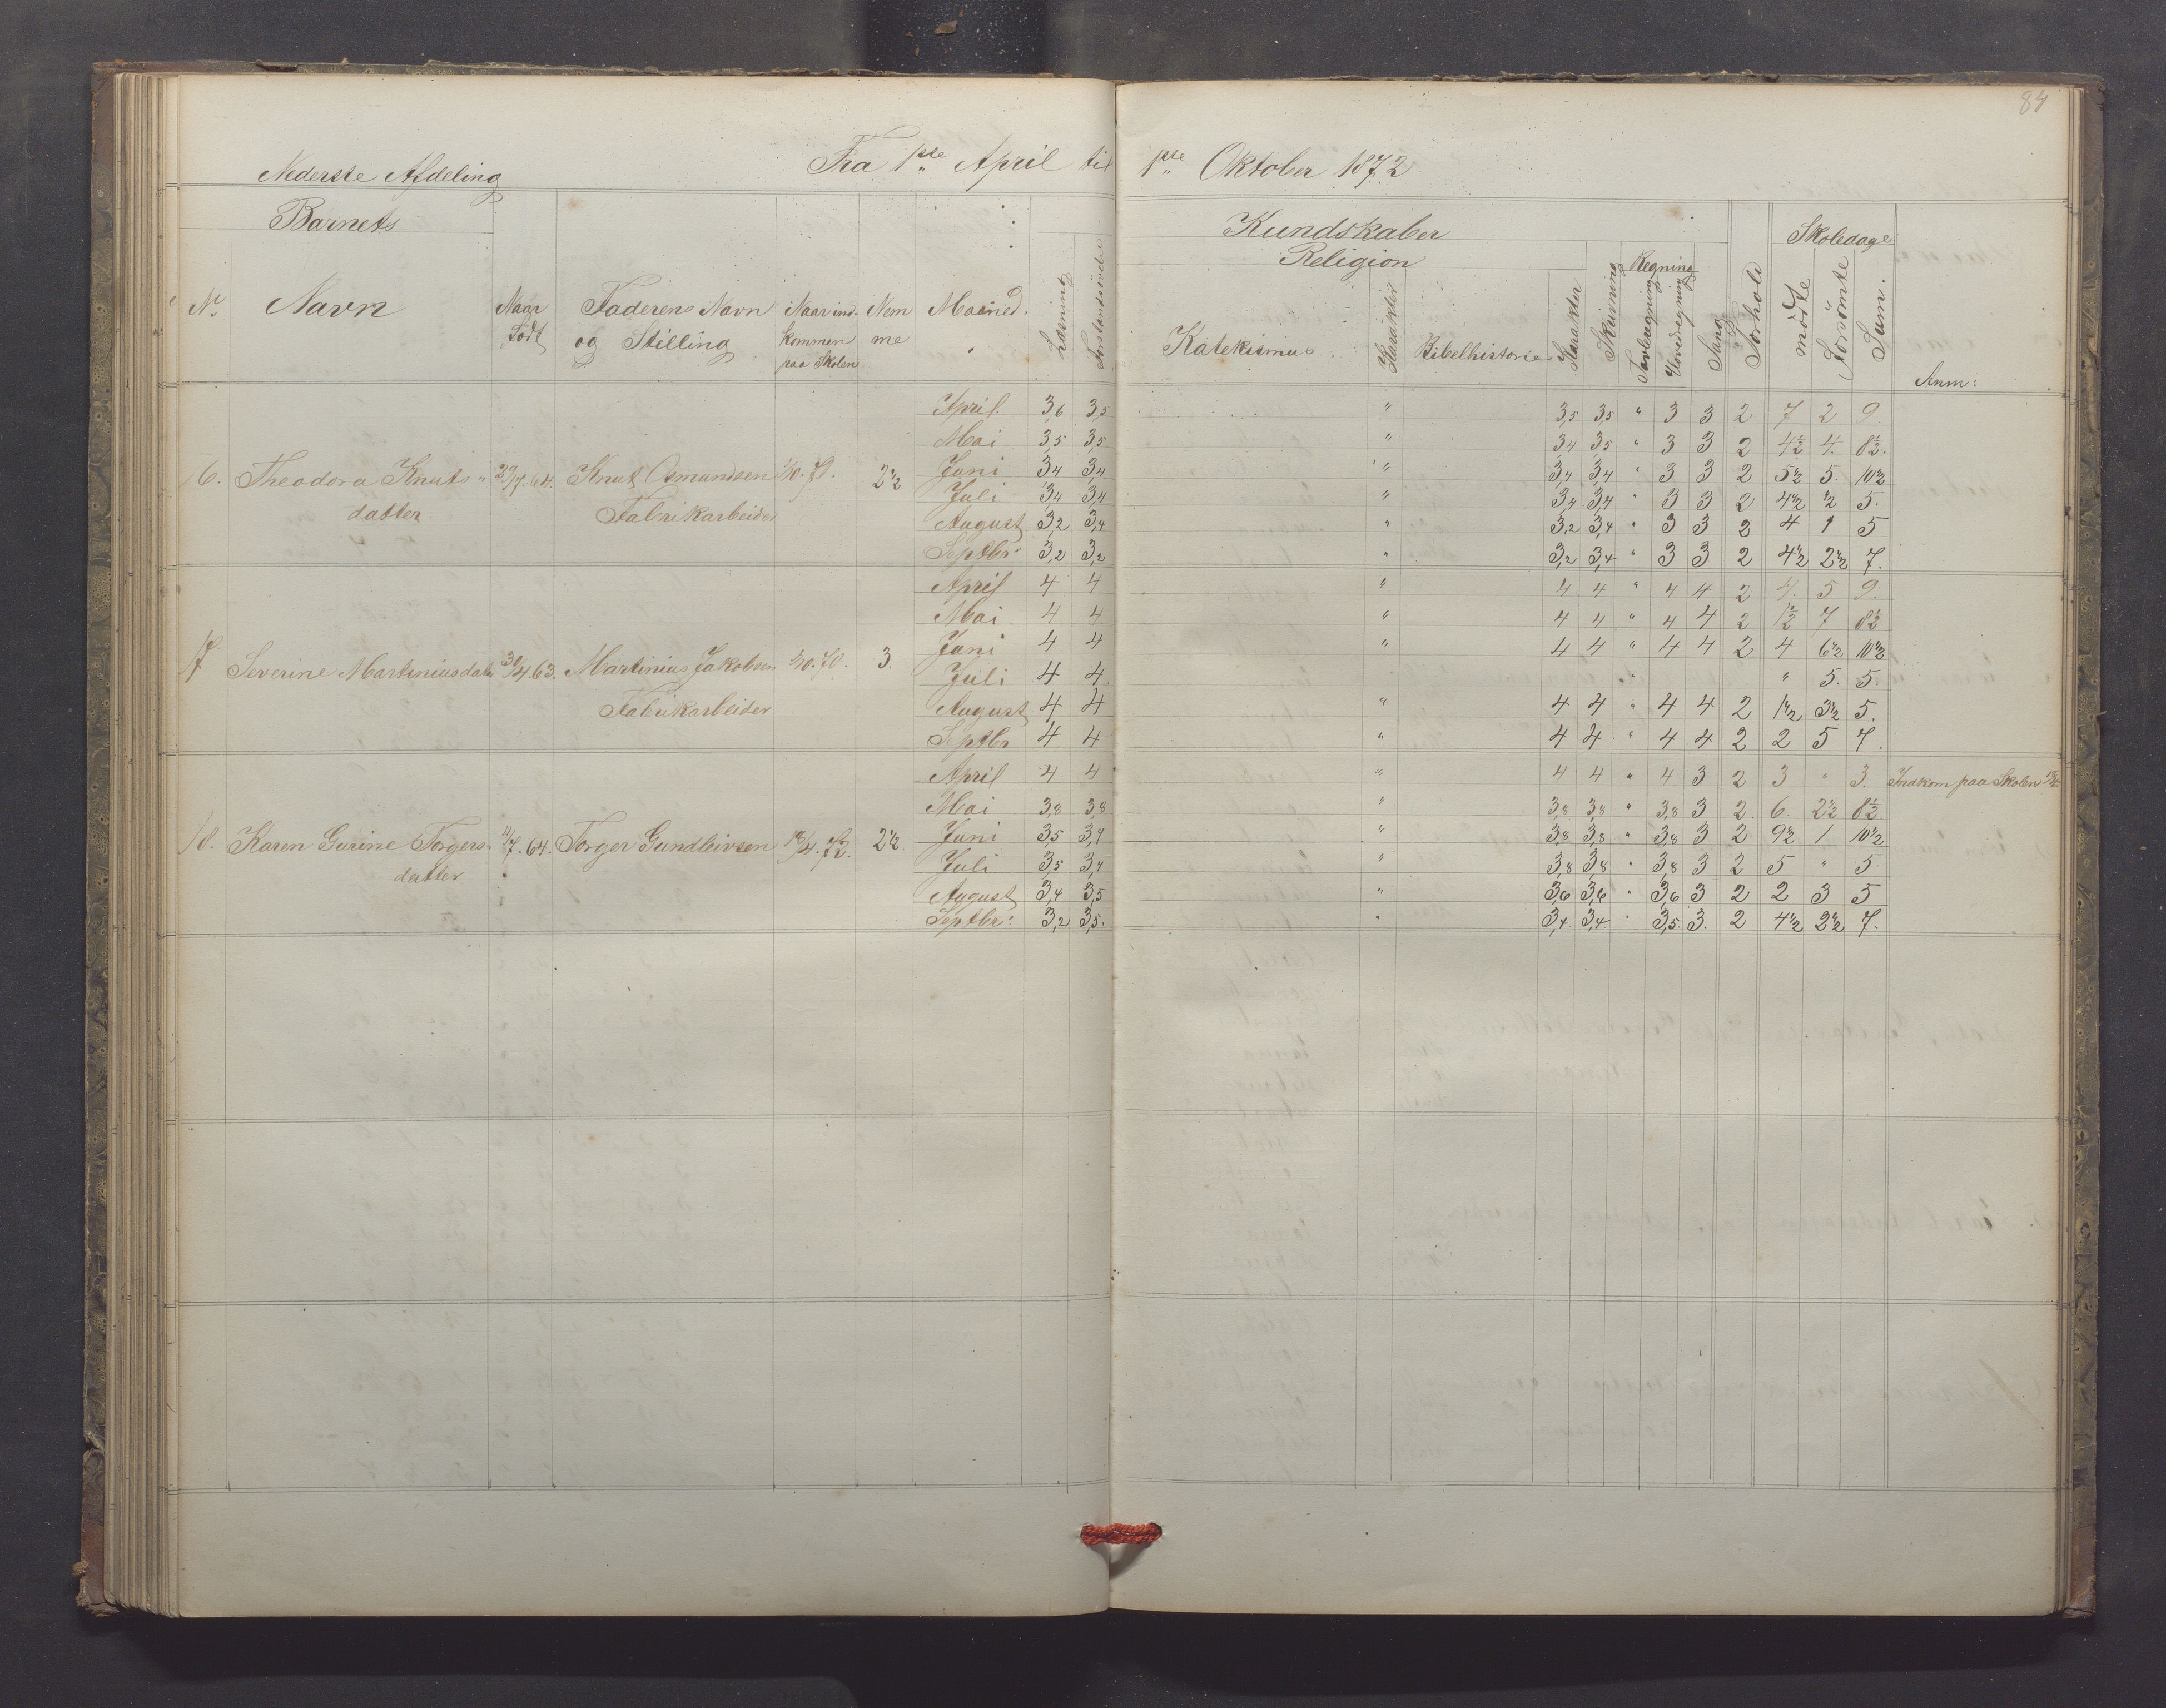 84
Nederste Afdeling Fra 1ste April til 1ste Oktober 1872
Barnets Kundskaber Skoledage
Religion Regning
No Navn Naar Født Faderens Navn og Stilling Naar ind-kommen paa Skolen Nemme Maaned. Læsning Forstandsøvelse Katekismus Karakter Bibelhistorie Karakter Skrivning Tavleregning Hovedregning Sang Forhold mødte Forsømte Sum. Anm:
April 3,6 3,5 " 3,5 3,5 " 3 3 2 7 2 9
Mai 3,5 3,5 " 3,4 3,5 " 3 3 2 4½ 4. 8½.
16. Theodora Knuts- 29/7.64. Knut Osmundsen 1/10.71. 2½ Juni 3,4 3,4 " 3,4 3,4 " 3 3 2 5½ 5. 10½
Juli 3,4 3,4 " 3,4 3,4 " 3 3 2 4½ ½ 5.
datter Fabrikarbeider August 3,2 3,4 " 3,2 3,4 " 3 3 2 4 1 5
Septbr: 3,2 3,2 " 3,2 3,4 " 3 3 2 4½ 2½ 7.
April 4 4 " 4 4 " 4 4 2 4. 5 9.
Mai 4 4 " 4 4 " 4 4 2 1½ 7 8½
Juni 4 4 " 4 4 " 4 4 2 4 6½ 10½
17 Severine Martiniusdatter 30/4.63. Martinius Jakobsen 1/10.70. 3. Juli 4 4 " " 5. 5.
Fabrikarbeider August 4 4 " 4 4 " 4 4 2 1½ 3½ 5.
Septbr 4 4 " 4 4 " 4 4 2 2 5 7.
April 4 4 " 4 4 " 4 3 2 3 " 3. Indkom paa Skolen
Mai 3,8 3,8 " 3,8 3,8 " 3,8 3 2. 6. 2½ 8½.
18. Karen Gurine Torgers- 11/7.64. Torger Gundleivsen 18/4.72. 2½. Juni 3,5 3,4 " 3,8 3,8 " 3,8 3 2 9½ 1 10½
datter Juli 3,5 3,4 " 3,8 3,8 " 3,8 3 2 5 " 5.
August 3,4 3,5 " 3,6 3,6 " 3,6 3 2 2 3 5
Septbr: 3,2 3,5. " 3,4 3,4. " 3,5. 3. 2 4½ 2½ 7.